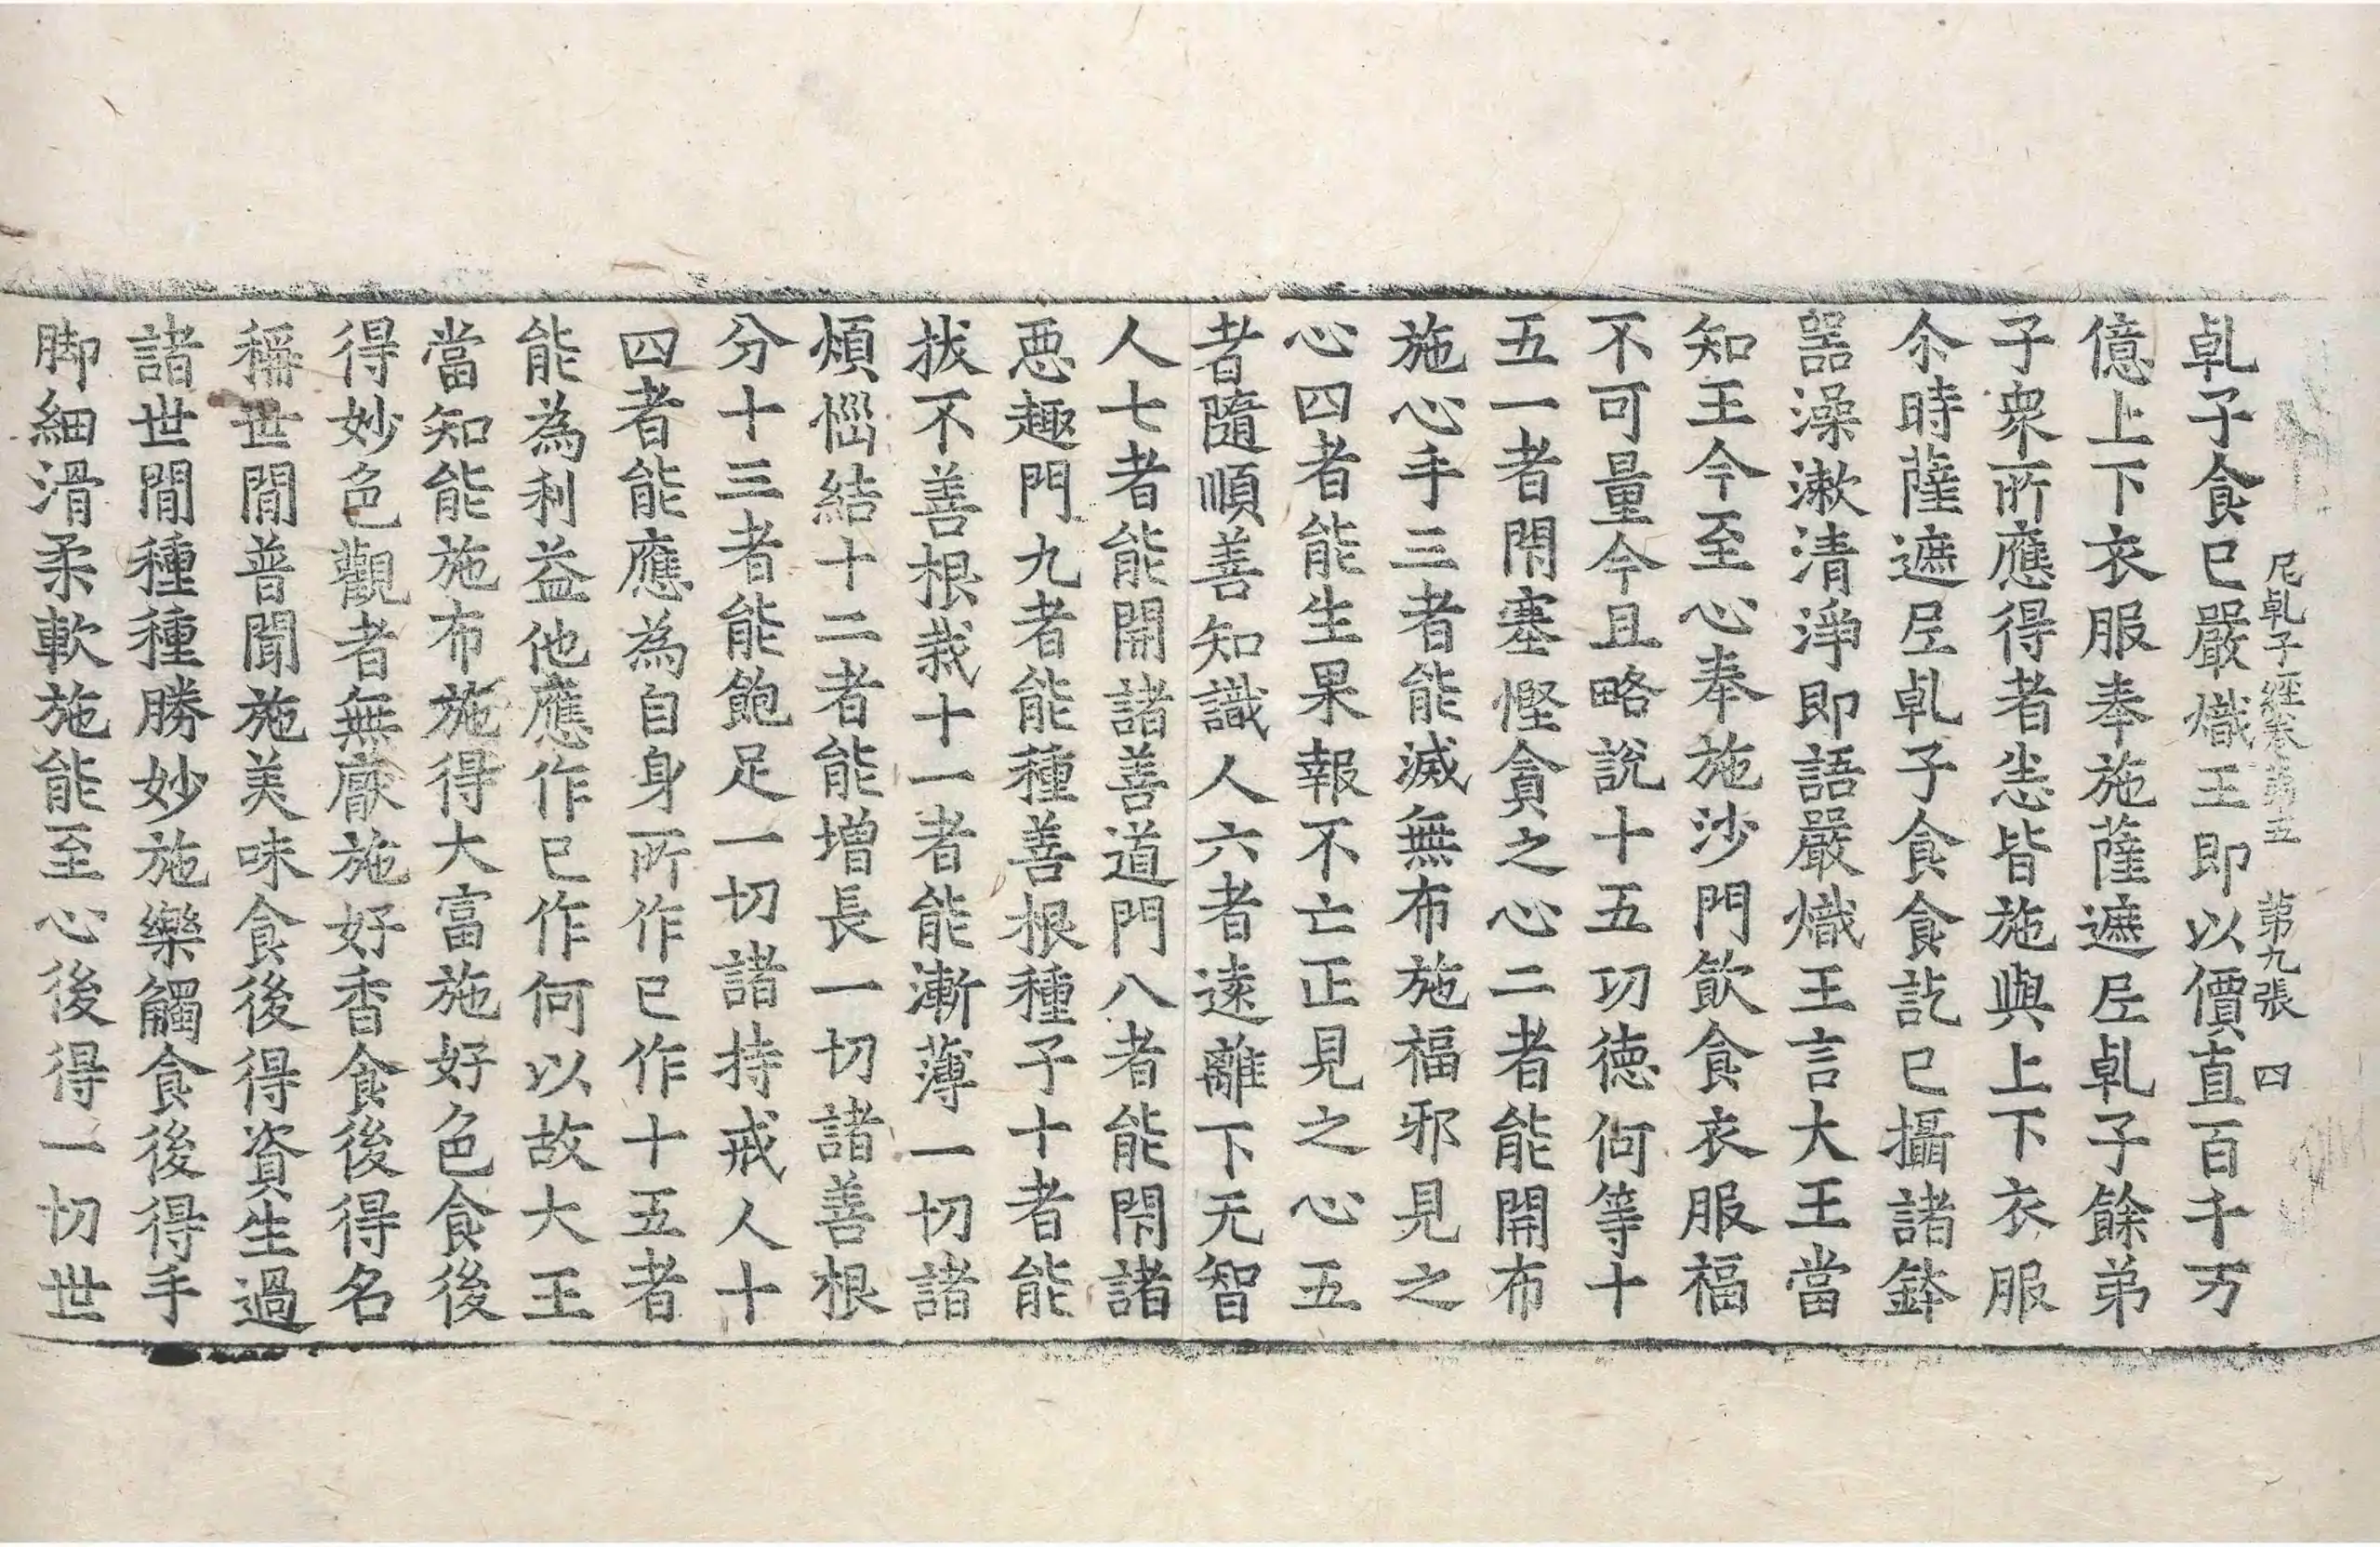 尼乹子經卷第五　第九張　四
乹子食已嚴熾王即以價直百千万
億上下衣服奉施薩遮尼乹子餘弟
子衆所應得者恙皆施與上下衣服
尒時薩遮尼乹子食食訖已攝諸鉢
器澡漱清淨即語嚴熾王言大王當
知王今至心奉施沙門飲食衣服福
不可量今且略說十五功德何等十
五一者閇塞慳貪之心二者能開布
施心手三者能滅無布施福邪見之
心四者能生果報不亡正見之心五
者隨順善知識人六者遠離下无智
人七者能開諸善道門八者能閇諸
惡趣門九者能種善根種子十者能
拔不善根栽十一者能漸薄一切諸
煩惱結十二者能增長一切諸善根
分十三者能飽足一切諸持戒人十
四者能應為自身所作已作十五者
能為利益他應作已作何以故大王
當知能施布施得大富施好色食後
得妙色觀者無厭施好香食後得名
稱世間普聞施美味食後得資生過
諸世間種種勝妙施樂觸食後得手
脚細滑柔軟施能至心後得一切世